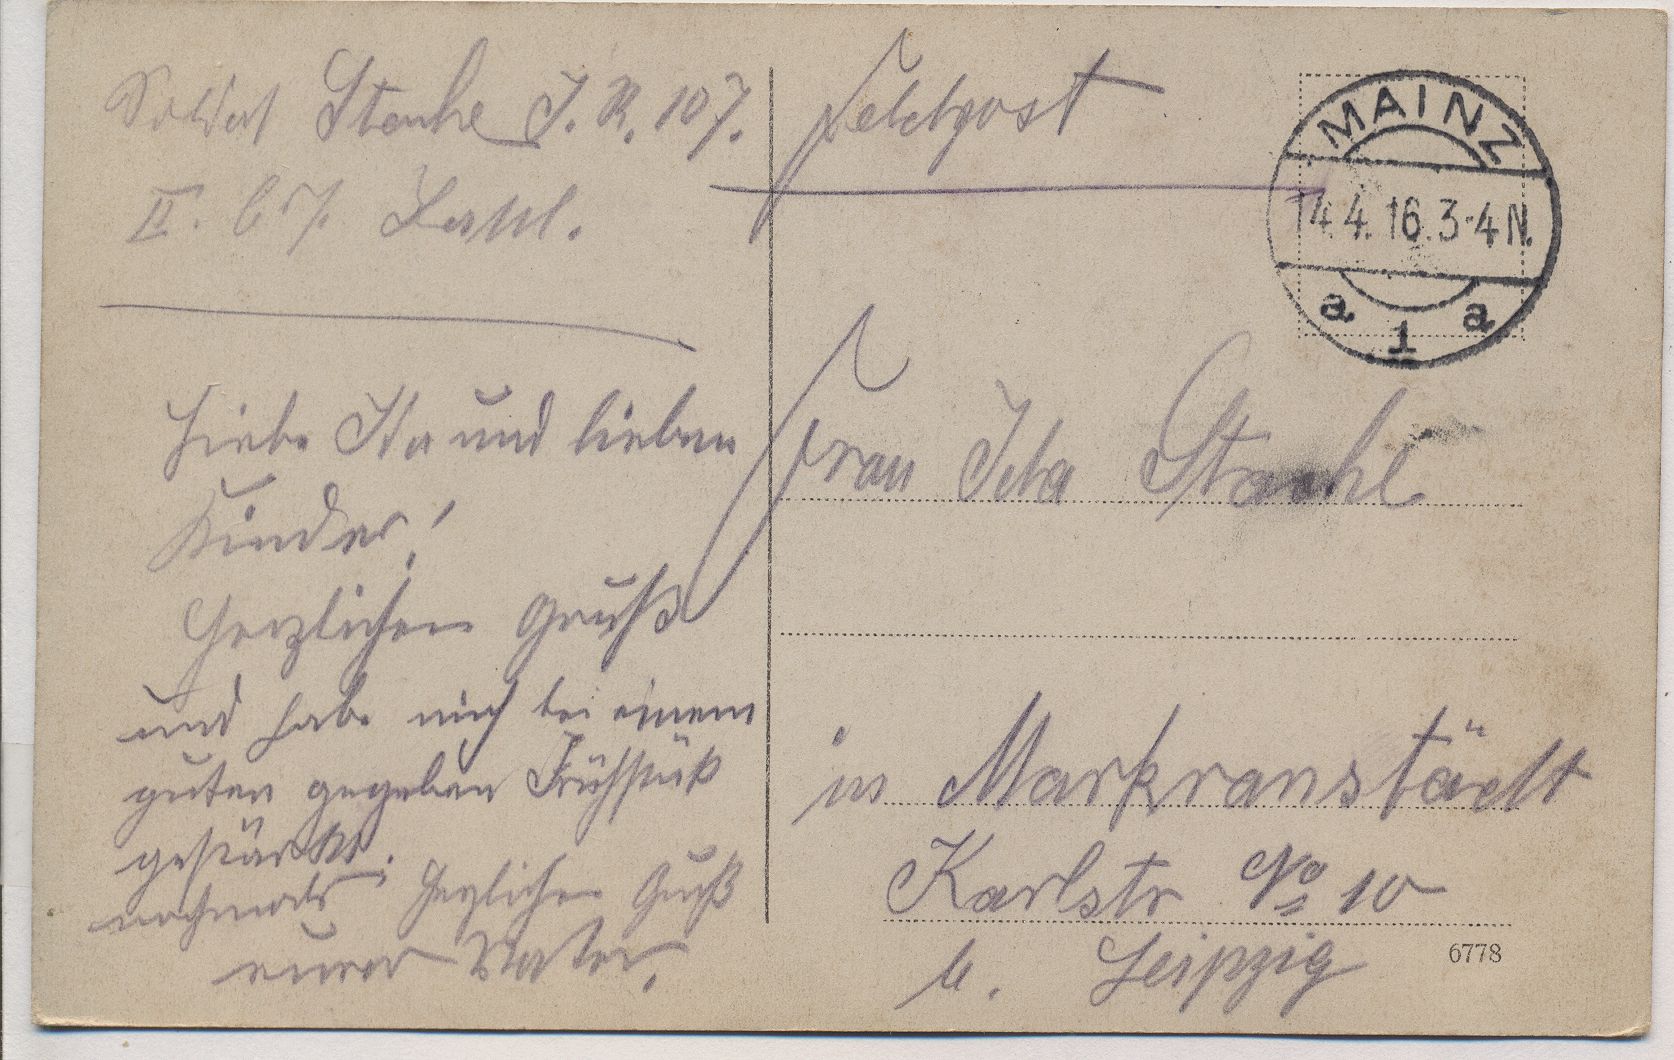 Soldat Stahl J. R. 107.
II.
Feldpost
MAINZ
14.4.16.3-4N.
a 1 a
Liebe Ida und lieben
Kinder!
Herzlichen Gruß
und habe mich bei einem
guten gegeben Frühstük
gestärkt.
nochmals Herzlichen Gruß
eurer Vater.
Frau Ida Stahl
in Markranstädt
Karlstr No 10
b. Leipzig
6778